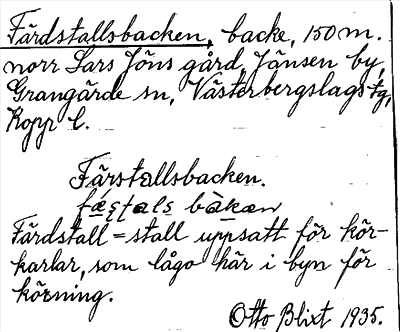 Färdstallsbacken, backe, 150 m.
norr Lars Jöns gård, Jänsen by,
Grangärde sn, Västerbergslags tg,
Kopp. l.
Färstallsbacken.
fæṣtals bàkæn
Färdstall = stall uppsatt för kör-
karlar, som lågo här i byn för
körning.
Otto Blixt 1935.